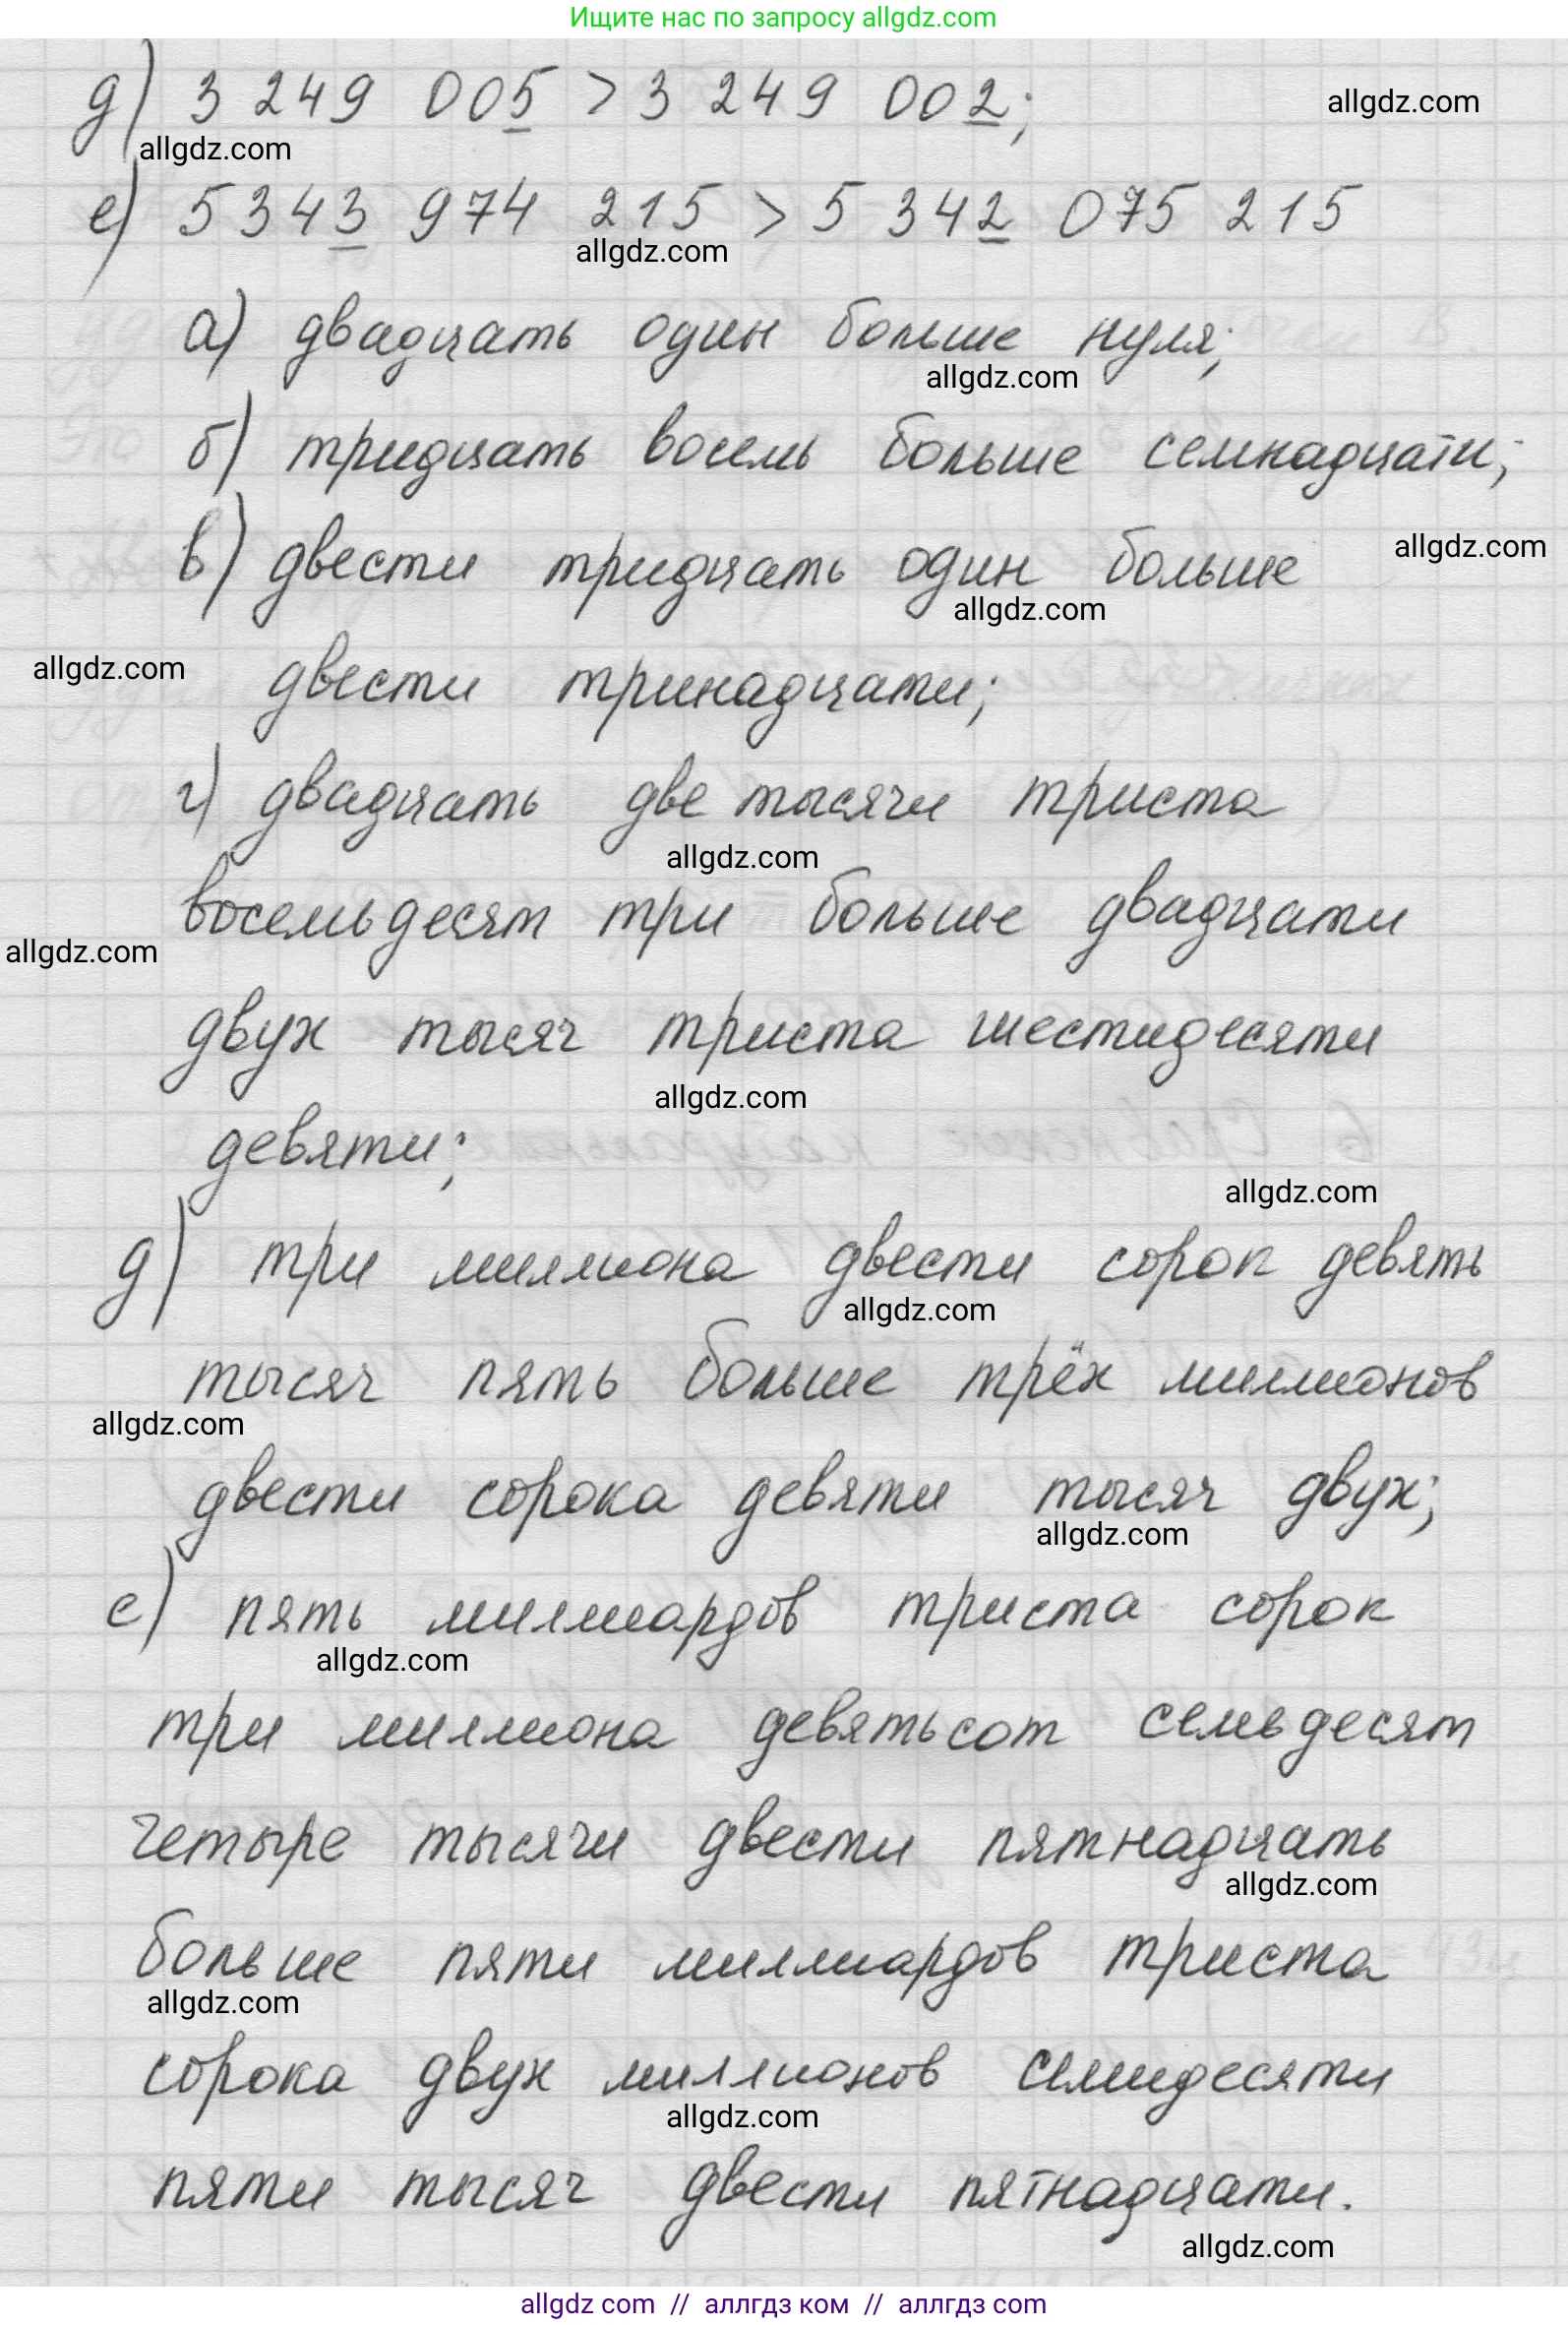 Ищите нас по запросу allgdz.com
д) 3 249 005 > 3 249 002;
allgdz.com
allgdz.com
е) 5 343 974 215 > 5 342 075 215
allgdz.com
а) двадцать один больше нуля;
allgdz.com
б) тридцать восемь больше семнадцати;
в) двести тридцать один больше
allgdz.com
allgdz.com
двести тринадцати;
allgdz.com
г) двадцать две тысячи триста
allgdz.com
восемьдесят три больше двадцати
allgdz.com
двух тысяч триста шестидесяти
allgdz.com
девяти;
allgdz.com
д) три миллиона двести сорок девять
allgdz.com
тысяч пять больше трёх миллионов
allgdz.com
двести сорока девяти тысяч двух;
allgdz.com
е) пять миллиардов триста сорок
allgdz.com
три миллиона девятьсот семьдесят
четыре тысячи двести пятнадцать
allgdz.com
больше пяти миллиардов триста
allgdz.com
сорока двух миллионов семидесяти
allgdz.com
пяти тысяч двести пятнадцати.
allgdz.com
allgdz com // аллгдз ком // аллгдз com